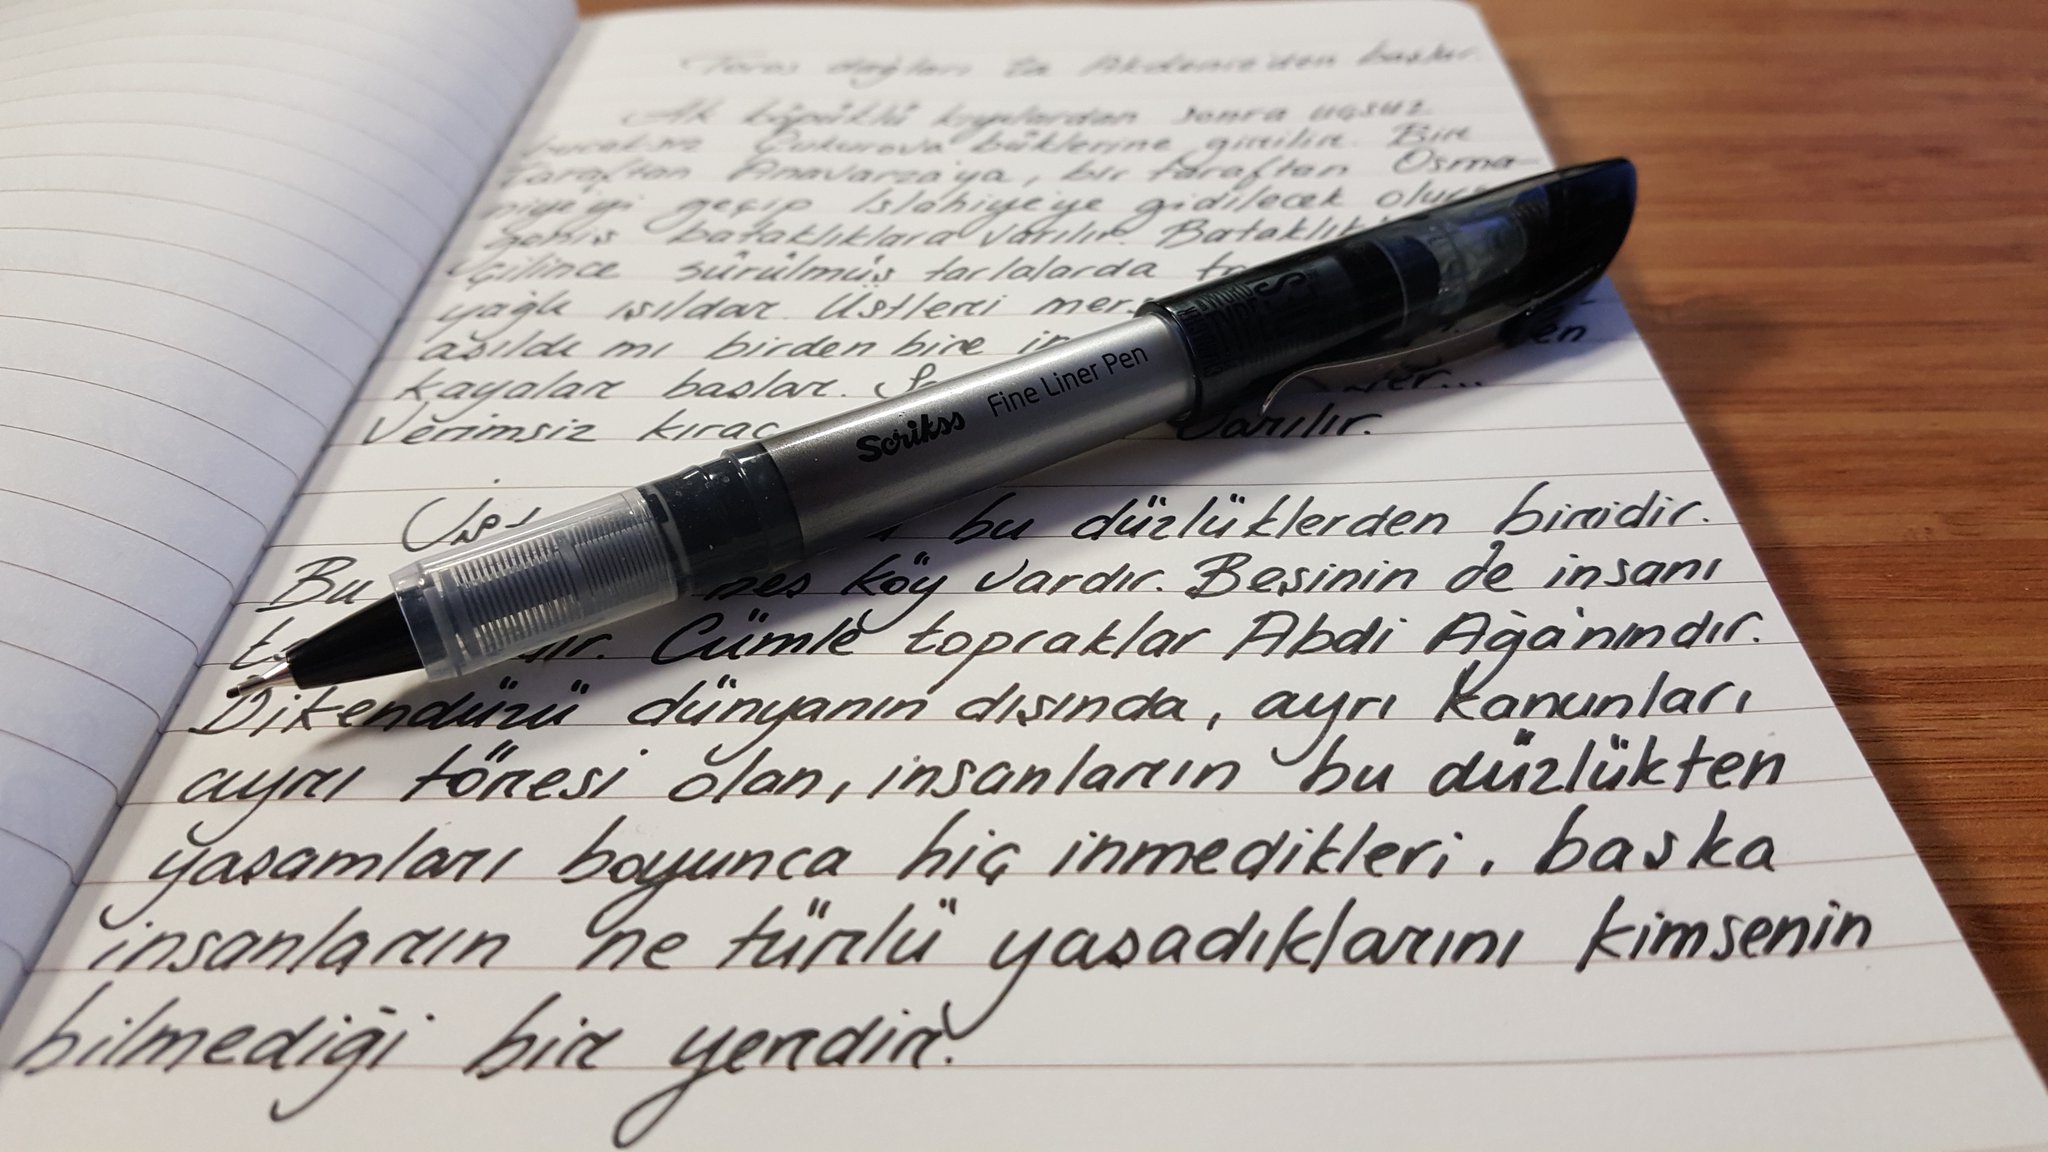 Toros dağları ta Akdeniz'den başlar.
Ak köpüklü kıyılardan sonra uçsuz
bucaksız Çukurova büklerine girilir. Bir
taraftan Anavarza'ya, bir taraftan Osma-
niye'yi geçip Islahiye'ye gidilecek
geniş bataklıklara varılır.
sürülmüş tarlalarda
yağlı ışıldar. Üstleri
aşıldı mı birden bire
kayalar başlar.
Verimsiz kıraç varılır.
bu düzlüklerden biridir.
Bu köy vardır. Beşinin de insanı
Cümle topraklar Abdi Ağa'nındır.
Dikendüzü dünyanın dışında, ayrı kanunları
ayrı töresi olan, insanların bu düzlükten
yaşamları boyunca hiç inmedikleri, başka
insanların ne türlü yaşadıklarını kimsenin
bilmediği bir yerdir.
Scrikss Fine Liner Pen